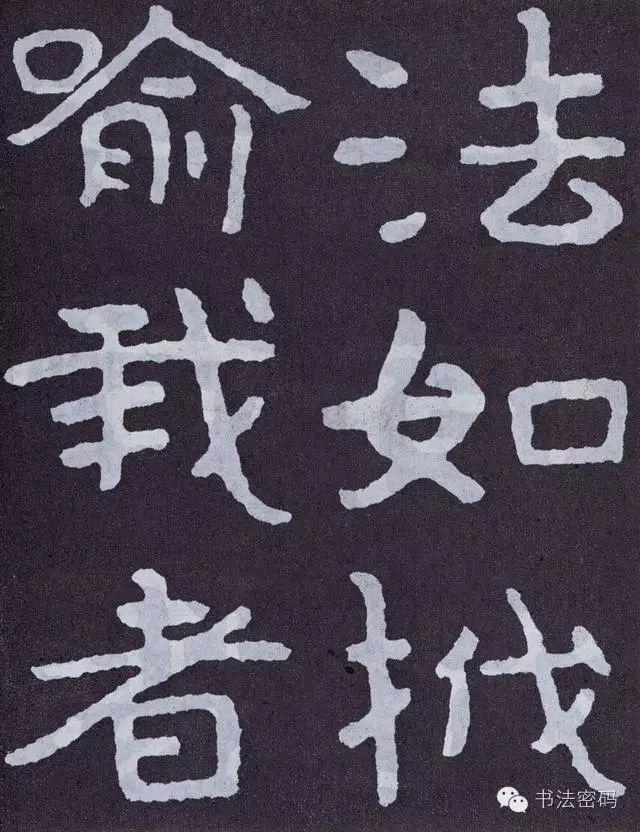 法如栰
喻我者
书法密码